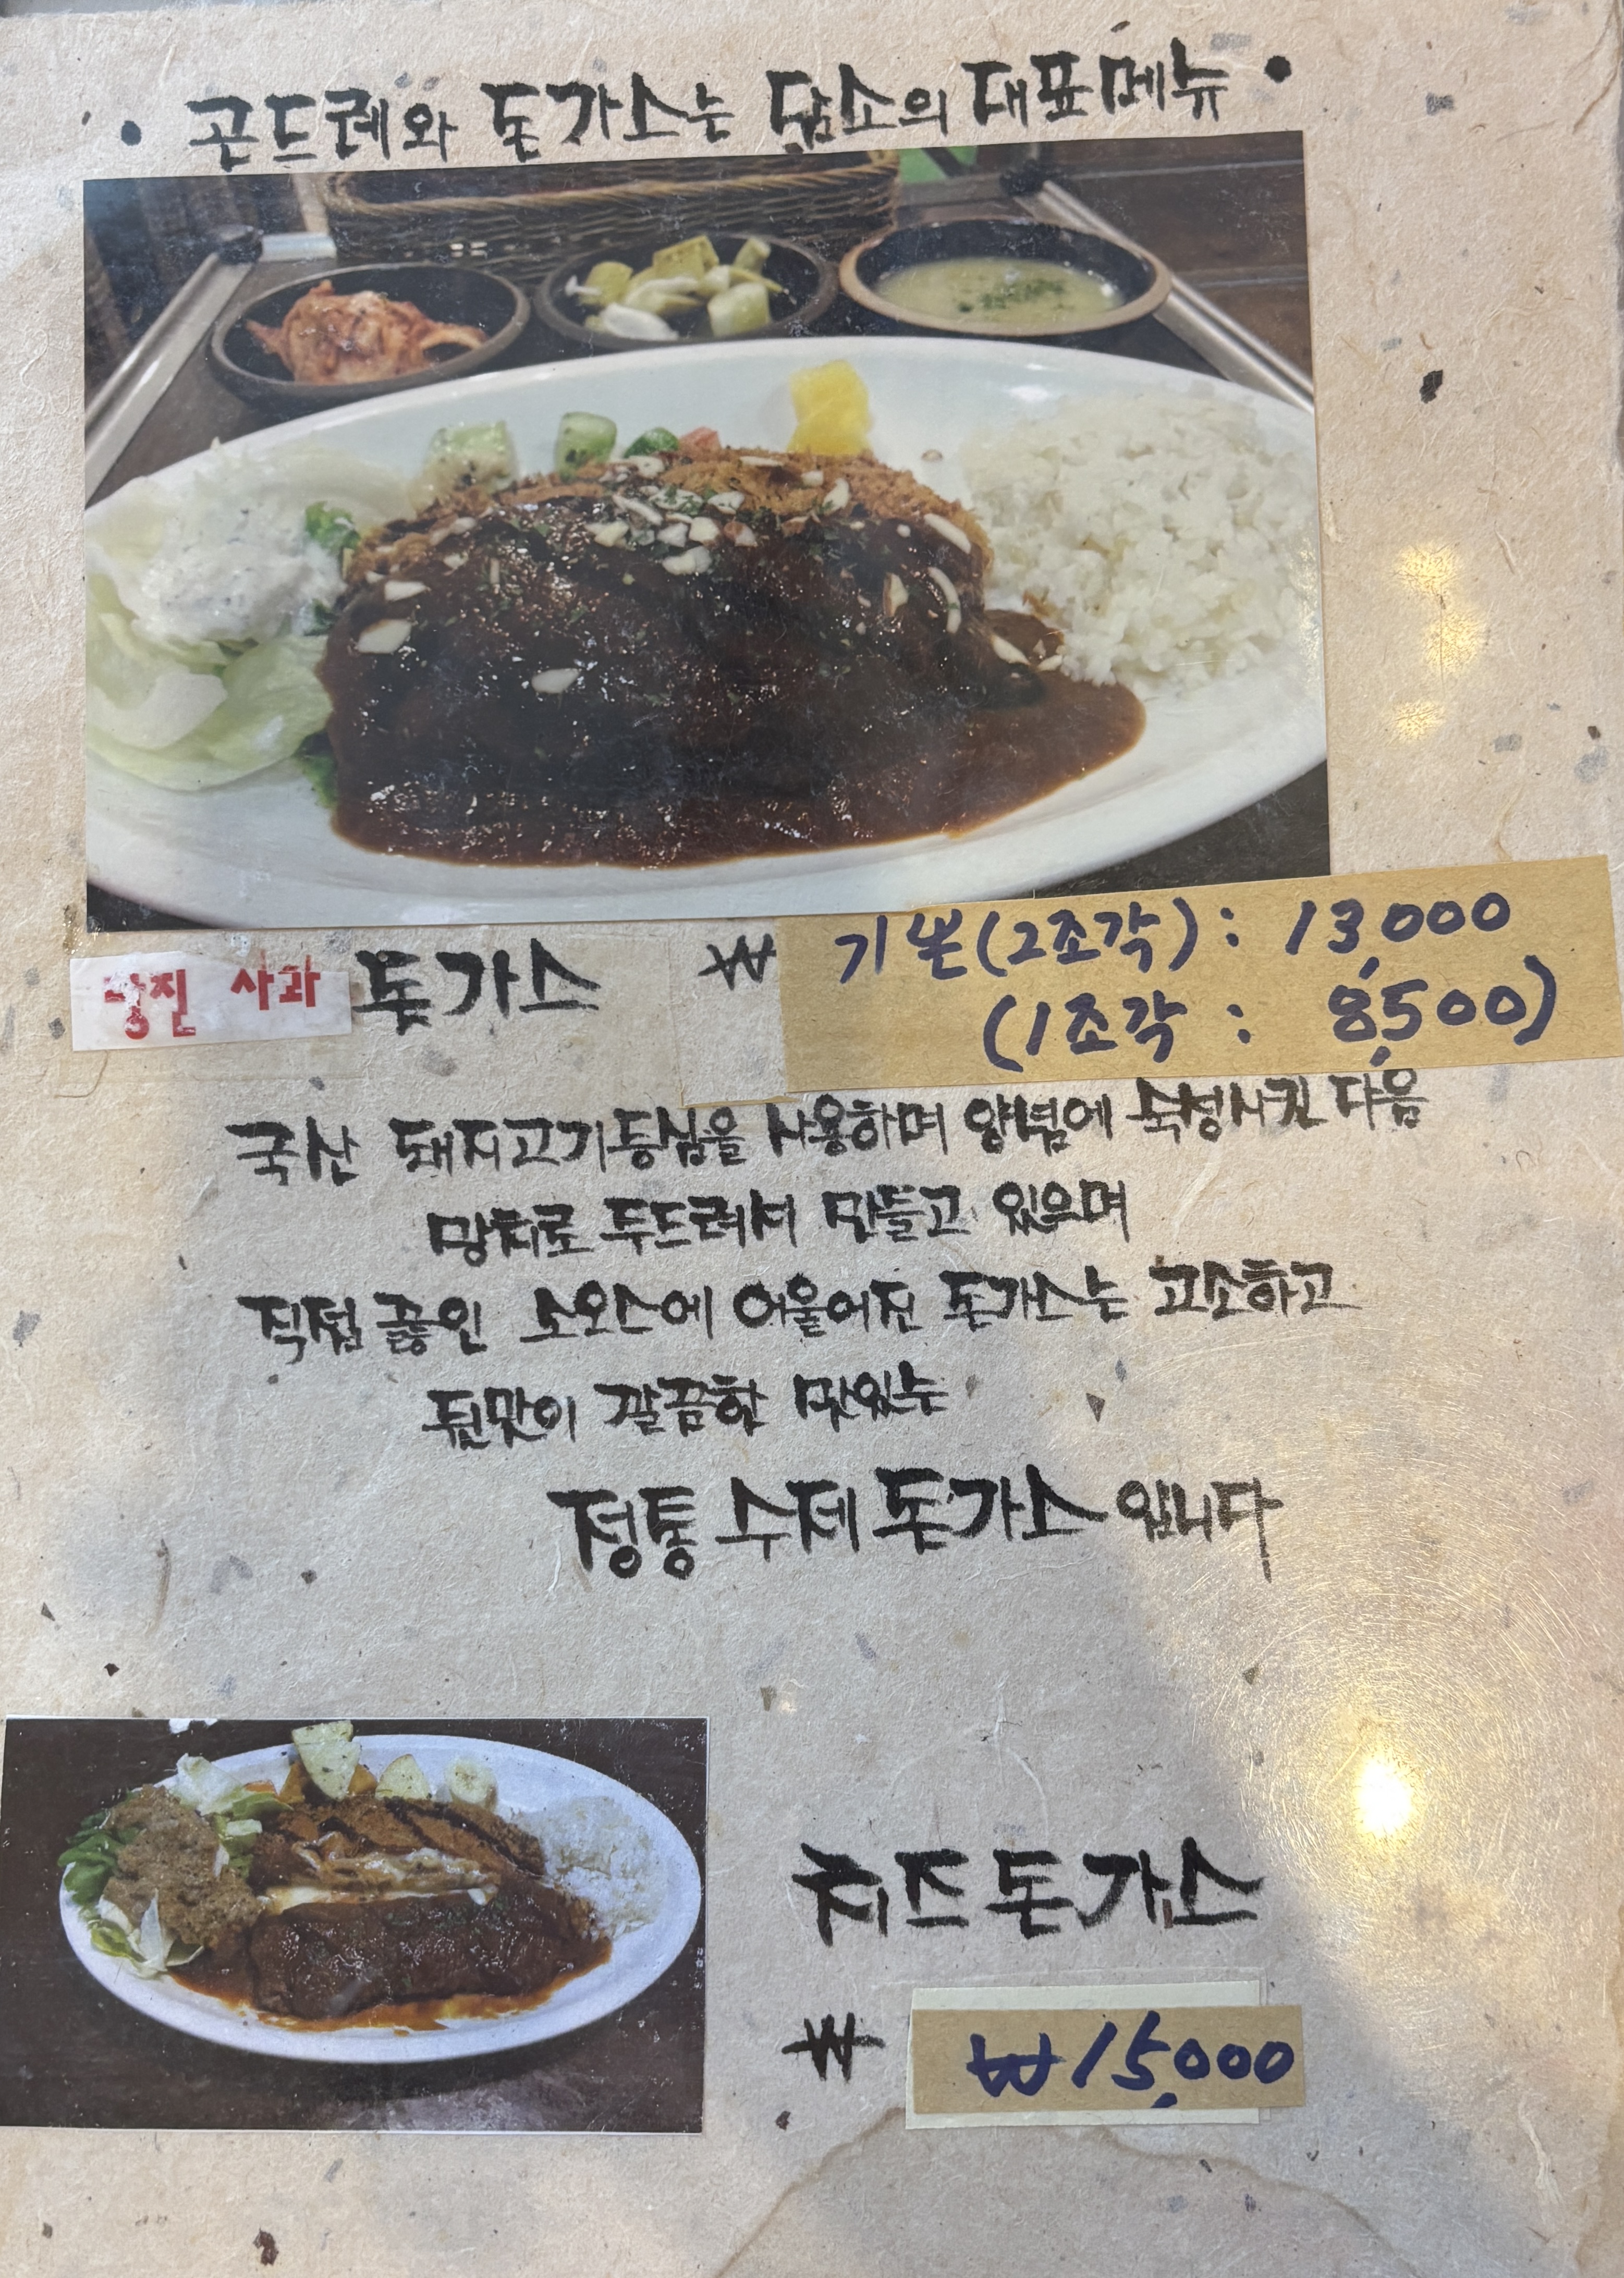 • 곤드레와 돈가스는 담소의 대표메뉴 •
당진 사과 돈가스 ₩ 기본(2조각): 13,000
(1조각 : 8,500)
국산 돼지고기등심을 사용하며 양념에 숙성시킨 다음
망치로 두드려서 만들고 있으며
직접 끓인 소오스에 어울어진 돈가스는 고소하고
뒷맛이 깔끔한 맛있는
정통 수제 돈가스 입니다
치즈돈가스
₩ ₩15,000